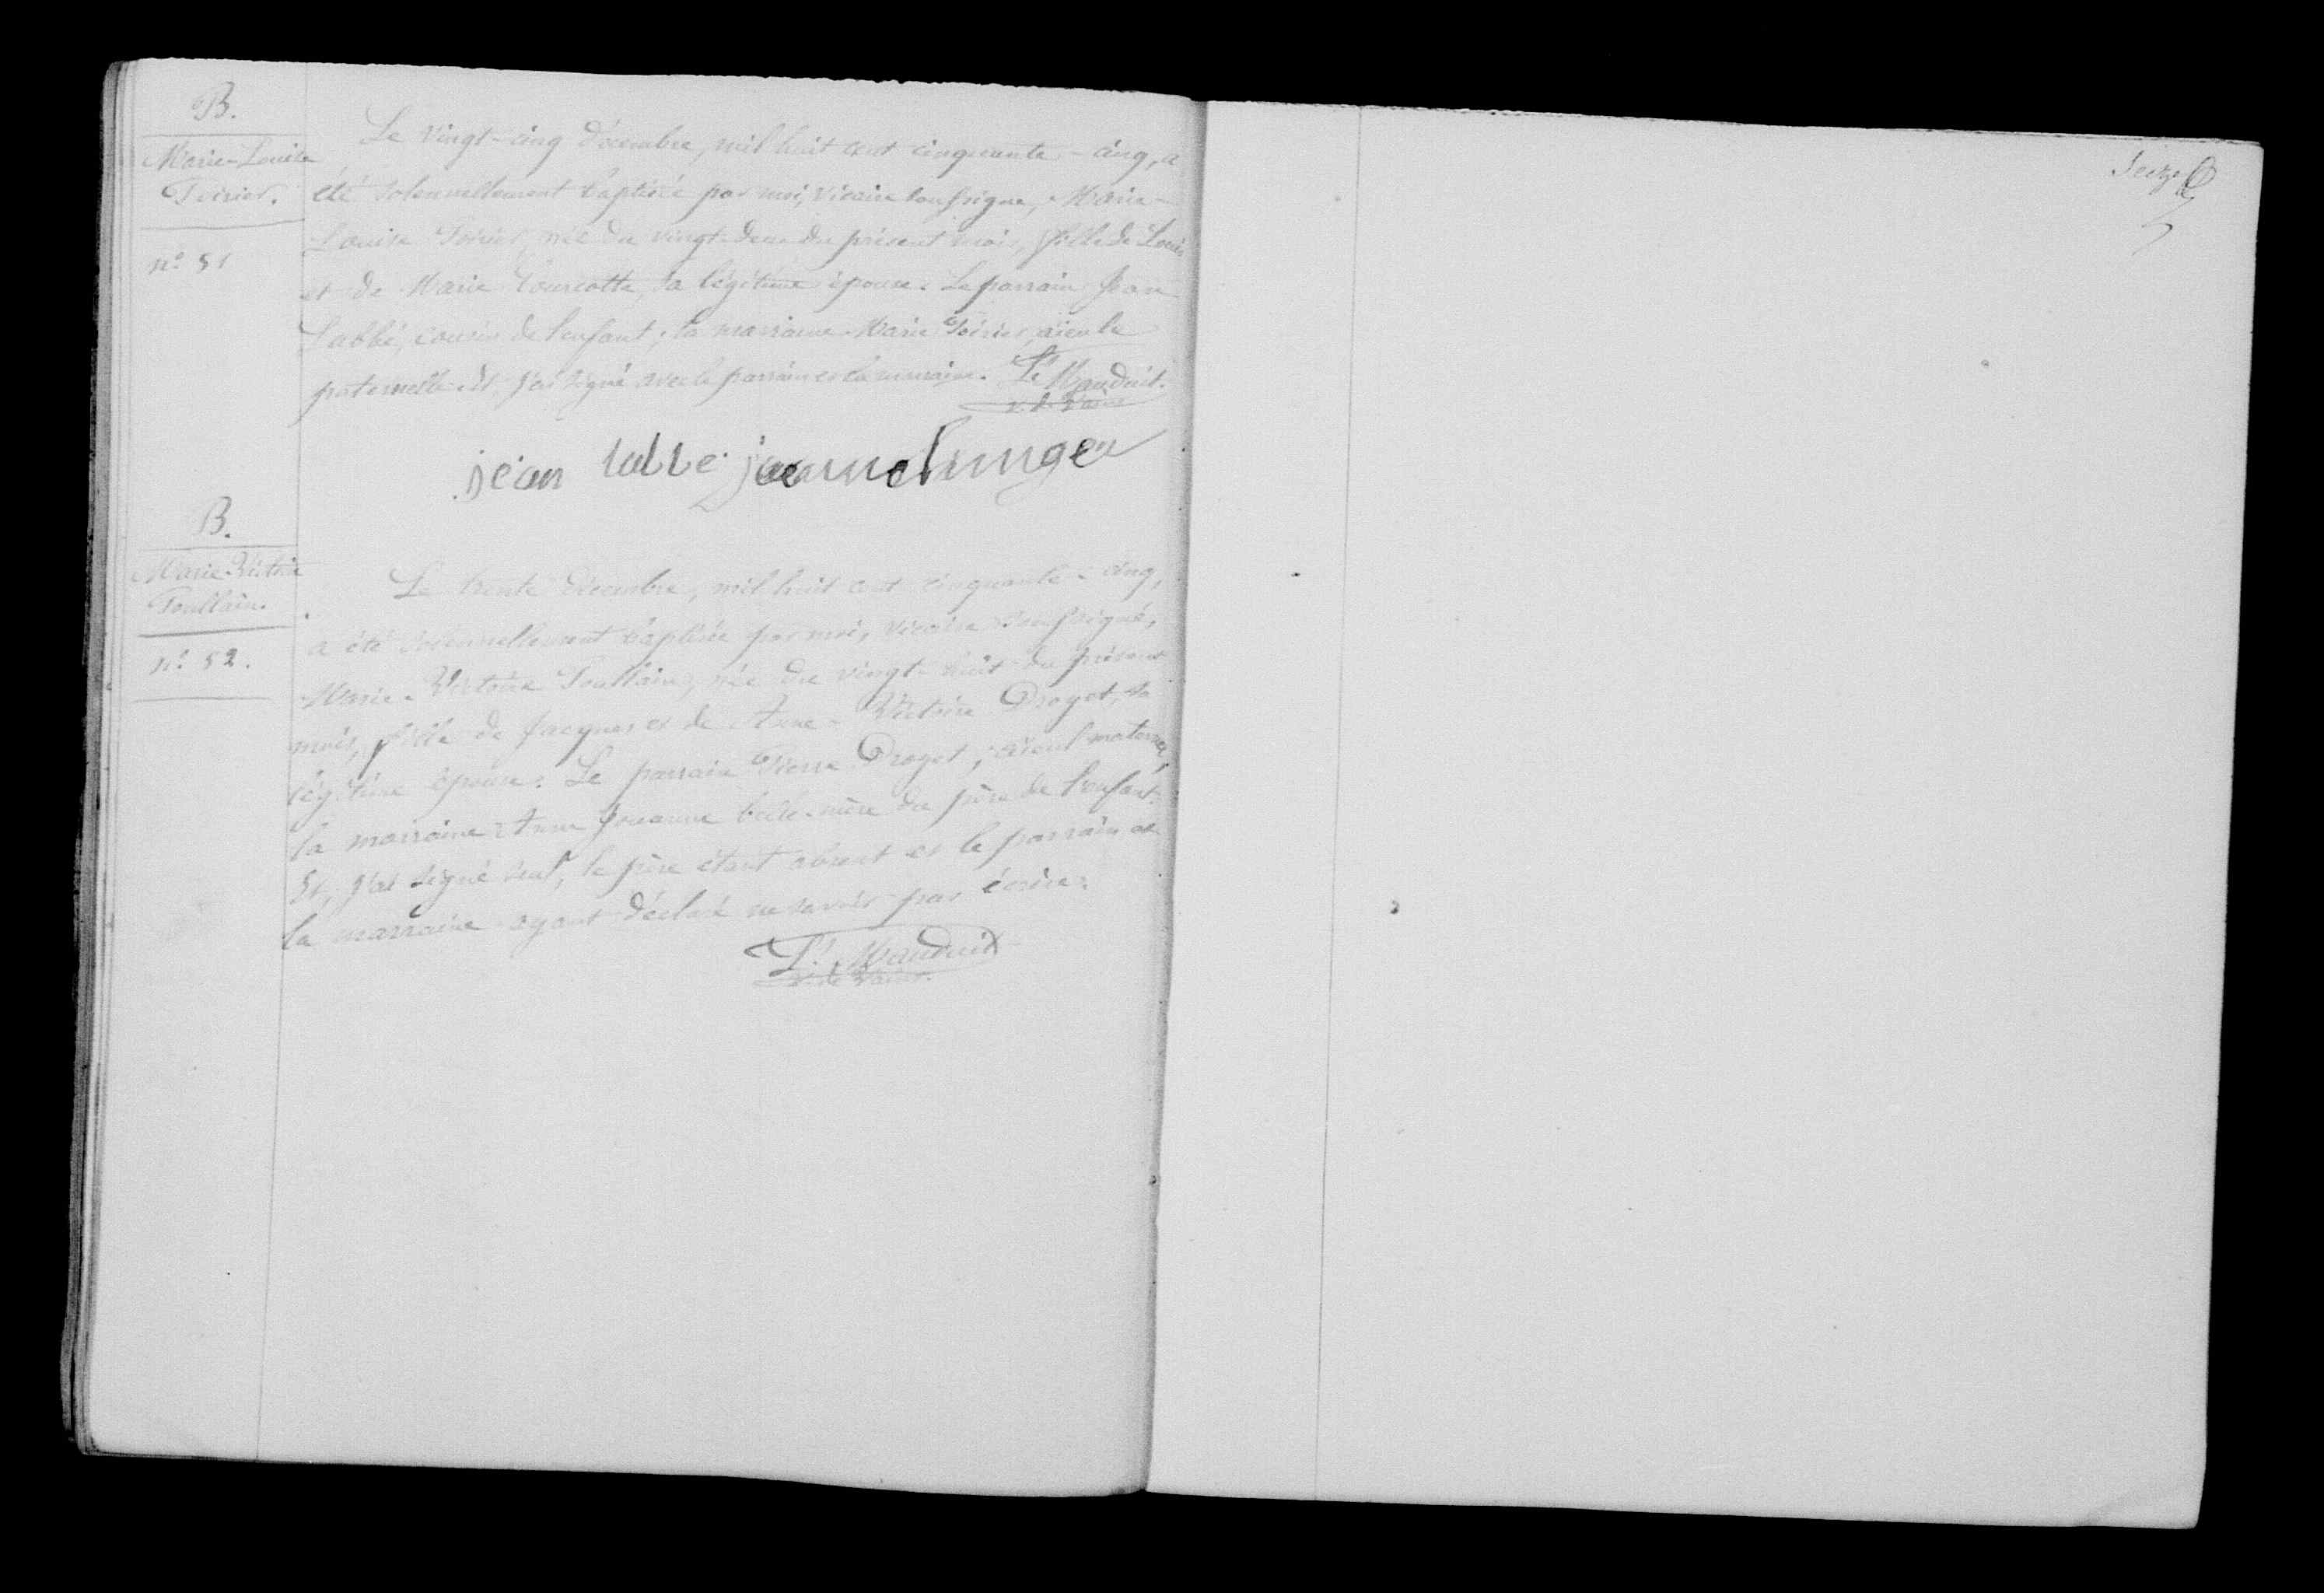 B.
Marie-Louise
Poirier.
n.° 51
Le vingt-cinq décembre, mil huit cent cinquante-cinq, a
été solennellement baptisée par moi, vicaire soussigné, Marie-
Louise Poirier, née du vingt-deux du présent mois, fille de Louis
et de Marie Tourcotte, sa légitime épouse. Le parrain Jean
Labbé, cousin de l'enfant; la marraine Marie Poirier, aïeule
paternelle. Et, j'ai signé avec le parrain et la marraine. Lt Mauduit.
v. de Vains
jean labbe
B.
Marie-Victoire
Poullain.
n.° 52.
Le trente décembre, mil huit cent cinquante-cinq,
a été solennellement baptisée par moi, vicaire soussigné,
Marie-Victoire Poullain, née du vingt-huit du présent
mois, fille de Jacques et de Anne-Victoire Droget, sa
légitime épouse. Le parrain Pierre Droget, aïeul maternel,
la marraine Anne Jouanne belle-mère du père de l'enfant.
Et, j'ai signé seul, le père étant absent et le parrain et
la marraine ayant déclaré ne savoir pas écrire.
Lt Mauduit
v. de Vains.
Seize